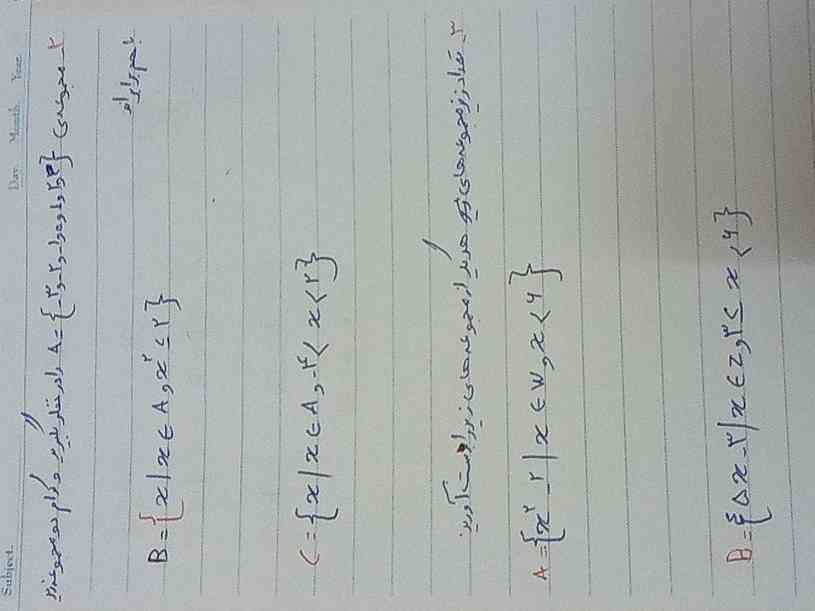 Subject. Day Month Year
۲ـ مجموعه‌ی A = {-۳و-۲و-۱و۰و۱و۲و۳} را در نظر بگیرید و کدام دو مجموعه زیر
با هم برابرند
B = {x | x ∈ A , x² ≤ ۲}
C = {x | x ∈ A , -۴ < x < ۲}
۳ـ تعداد زیر مجموعه‌های هر یک از مجموعه‌های زیر را بدست آورید
A = {x² - ۲ | x ∈ W , x < ۶}
B = {۵x - ۳ | x ∈ Z , ۲ ≤ x < ۶}